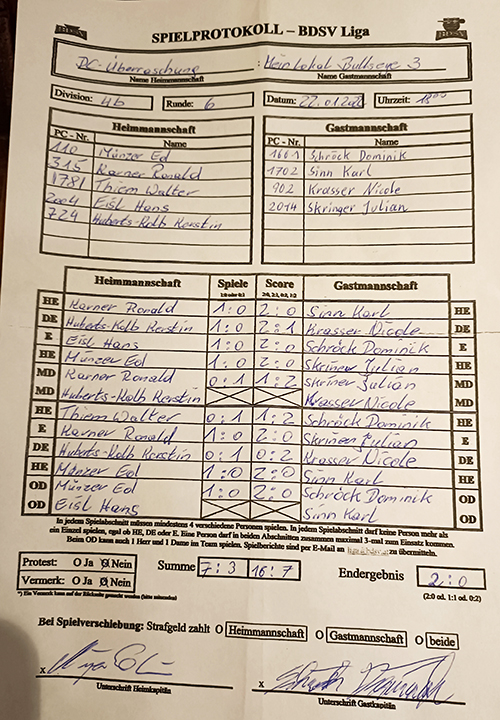 BDSV
SPIELPROTOKOLL – BDSV Liga
BDSV
DC-Überraschung : Mein Lokal Bullseye 3
Name Heimmannschaft Name Gastmannschaft
Division: 4b Runde: 6 Datum: 22.01.20 Uhrzeit: 18⁰⁰
Heimmannschaft Gastmannschaft
PC - Nr. Name PC - Nr. Name
110 Münzer Ed 1661 Schröck Dominik
315 Karner Ronald 1702 Sinn Karl
1781 Thiem Walter 902 Krasser Nicole
2004 Eisl Hans 2014 Skringer Julian
729 Huberts-Kolb Kerstin
Heimmannschaft Spiele Score Gastmannschaft
1:0 oder 0:1 2:0, 2:1, 0:2, 1:2
HE Karner Ronald 1:0 2:0 Sinn Karl HE
DE Huberts-Kolb Kerstin 1:0 2:1 Krasser Nicole DE
E Eisl Hans 1:0 2:0 Schröck Dominik E
HE Münzer Ed 1:0 2:0 Skriner Julian HE
MD Karner Ronald 0:1 1:2 Skriner Julian MD
MD Huberts-Kolb Kerstin Krasser Nicole MD
HE Thiem Walter 0:1 1:2 Schröck Dominik HE
E Karner Ronald 1:0 2:0 Skriner Julian E
DE Huberts-Kolb Kerstin 0:1 0:2 Krasser Nicole DE
HE Münzer Ed 1:0 2:0 Sinn Karl HE
OD Münzer Ed 1:0 2:0 Schröck Dominik OD
OD Eisl Hans Sinn Karl OD
In jedem Spielabschnitt müssen mindestens 4 verschiedene Personen spielen. In jedem Spielabschnitt darf keine Person mehr als
ein Einzel spielen, egal ob HE, DE oder E. Eine Person darf in beiden Abschnitten zusammen maximal 3-mal zum Einsatz kommen.
Beim OD kann auch 1 Herr und 1 Dame im Team spielen. Spielberichte sind per E-Mail an zu übermitteln.
Protest: O Ja O Nein Summe 7:3 16:7 Endergebnis 2:0
Vermerk: O Ja O Nein (2:0 od. 1:1 od. 0:2)
*) Ein Vermerk kann auf der Rückseite gemacht werden (bitte ankreuzen)
Bei Spielverschiebung: Strafgeld zahlt O Heimmannschaft O Gastmannschaft O beide
x x
Unterschrift Heimkapitän Unterschrift Gastkapitän